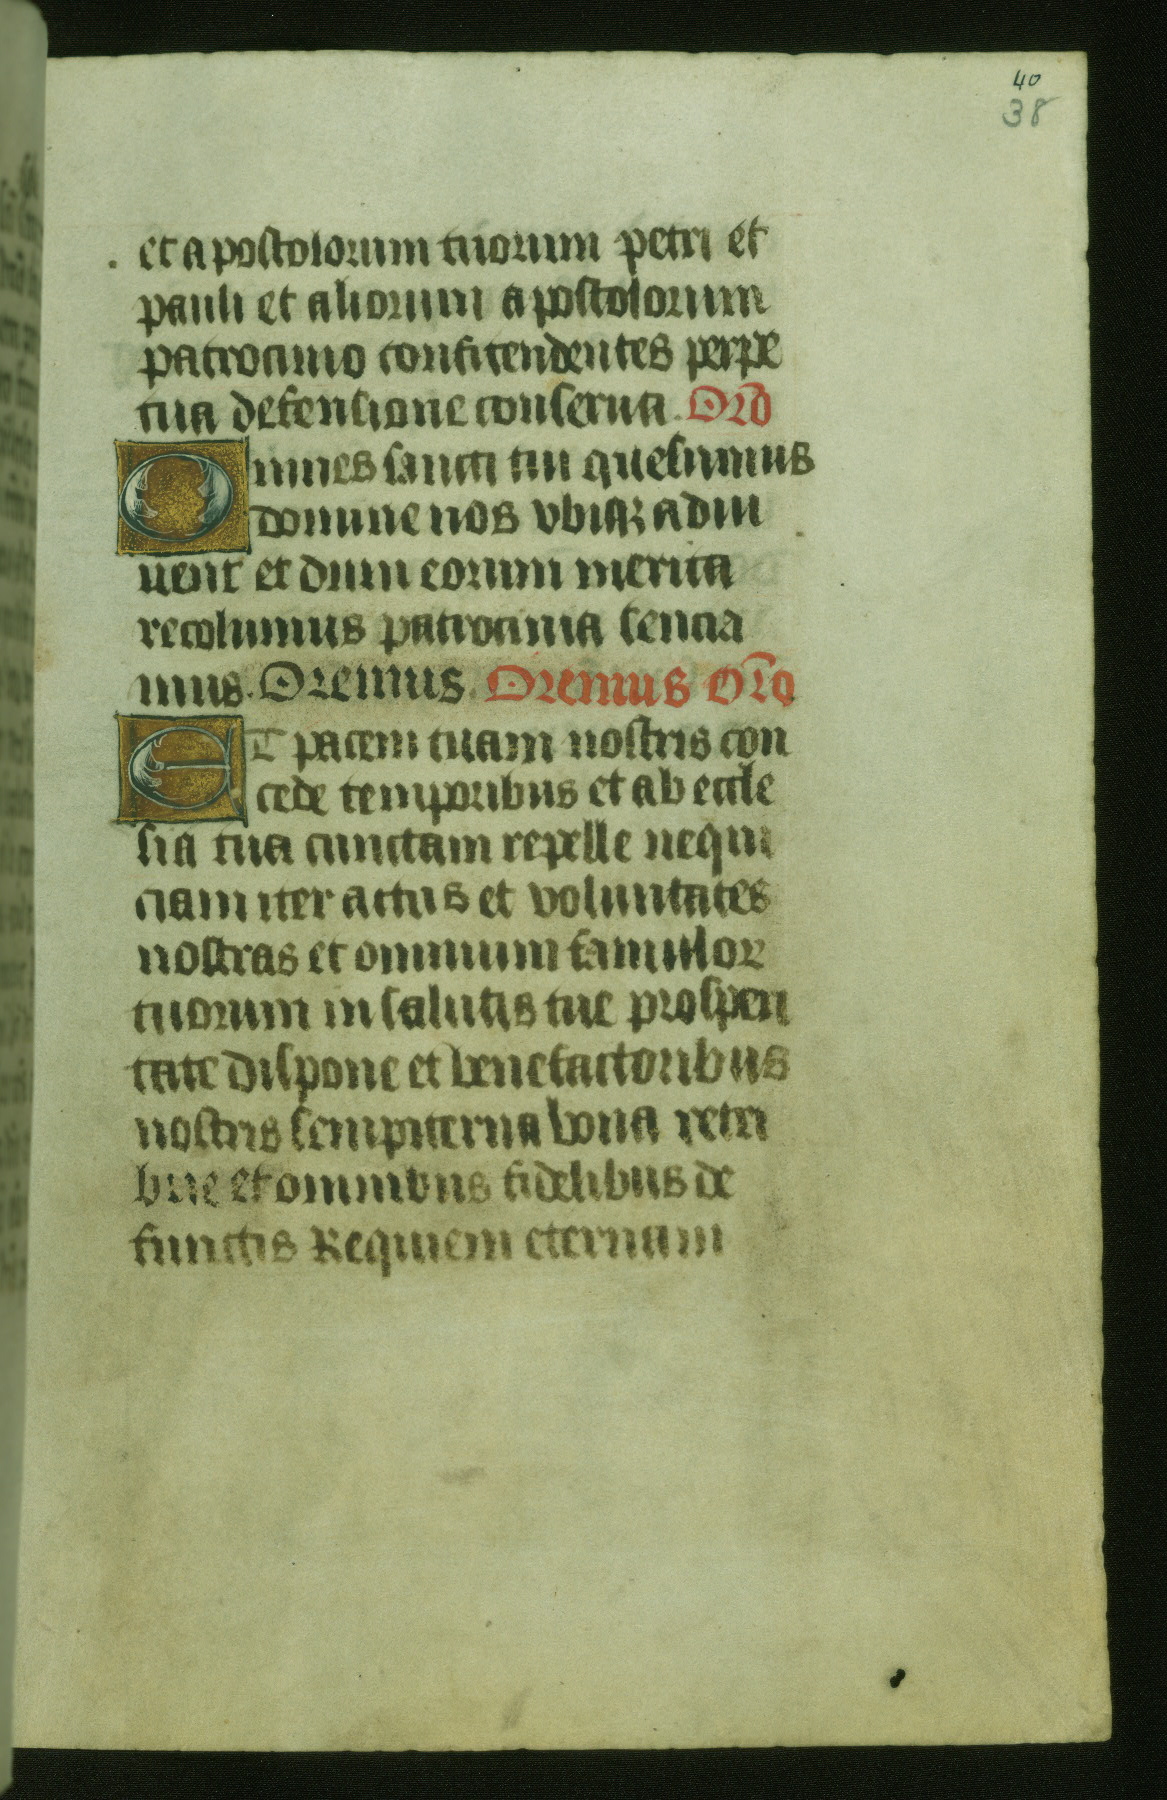 40
38
et apostolorum tuorum petri et
pauli et aliorum apostolorum
patrocinio confitendentes perpe
tua defensione conserua. Orō
Omnes sancti tui quesumus
domine nos vbiqꝫ adiu
uent et dum eorum merita
recolumus patrocinia sencia
mus. Oremus. Oremus Orō
Et pacem tuam nostris con
cede temporibus et ab eccle
sia tua cunctam repelle nequi
ciam iter actus et voluntates
nostras et omnium famulor
tuorum in salutis tue prosperi
tate dispone et benefactoribus
nostris sempiterna bona retri
bue et omnibus fidelibus de
functis Requiem eternam